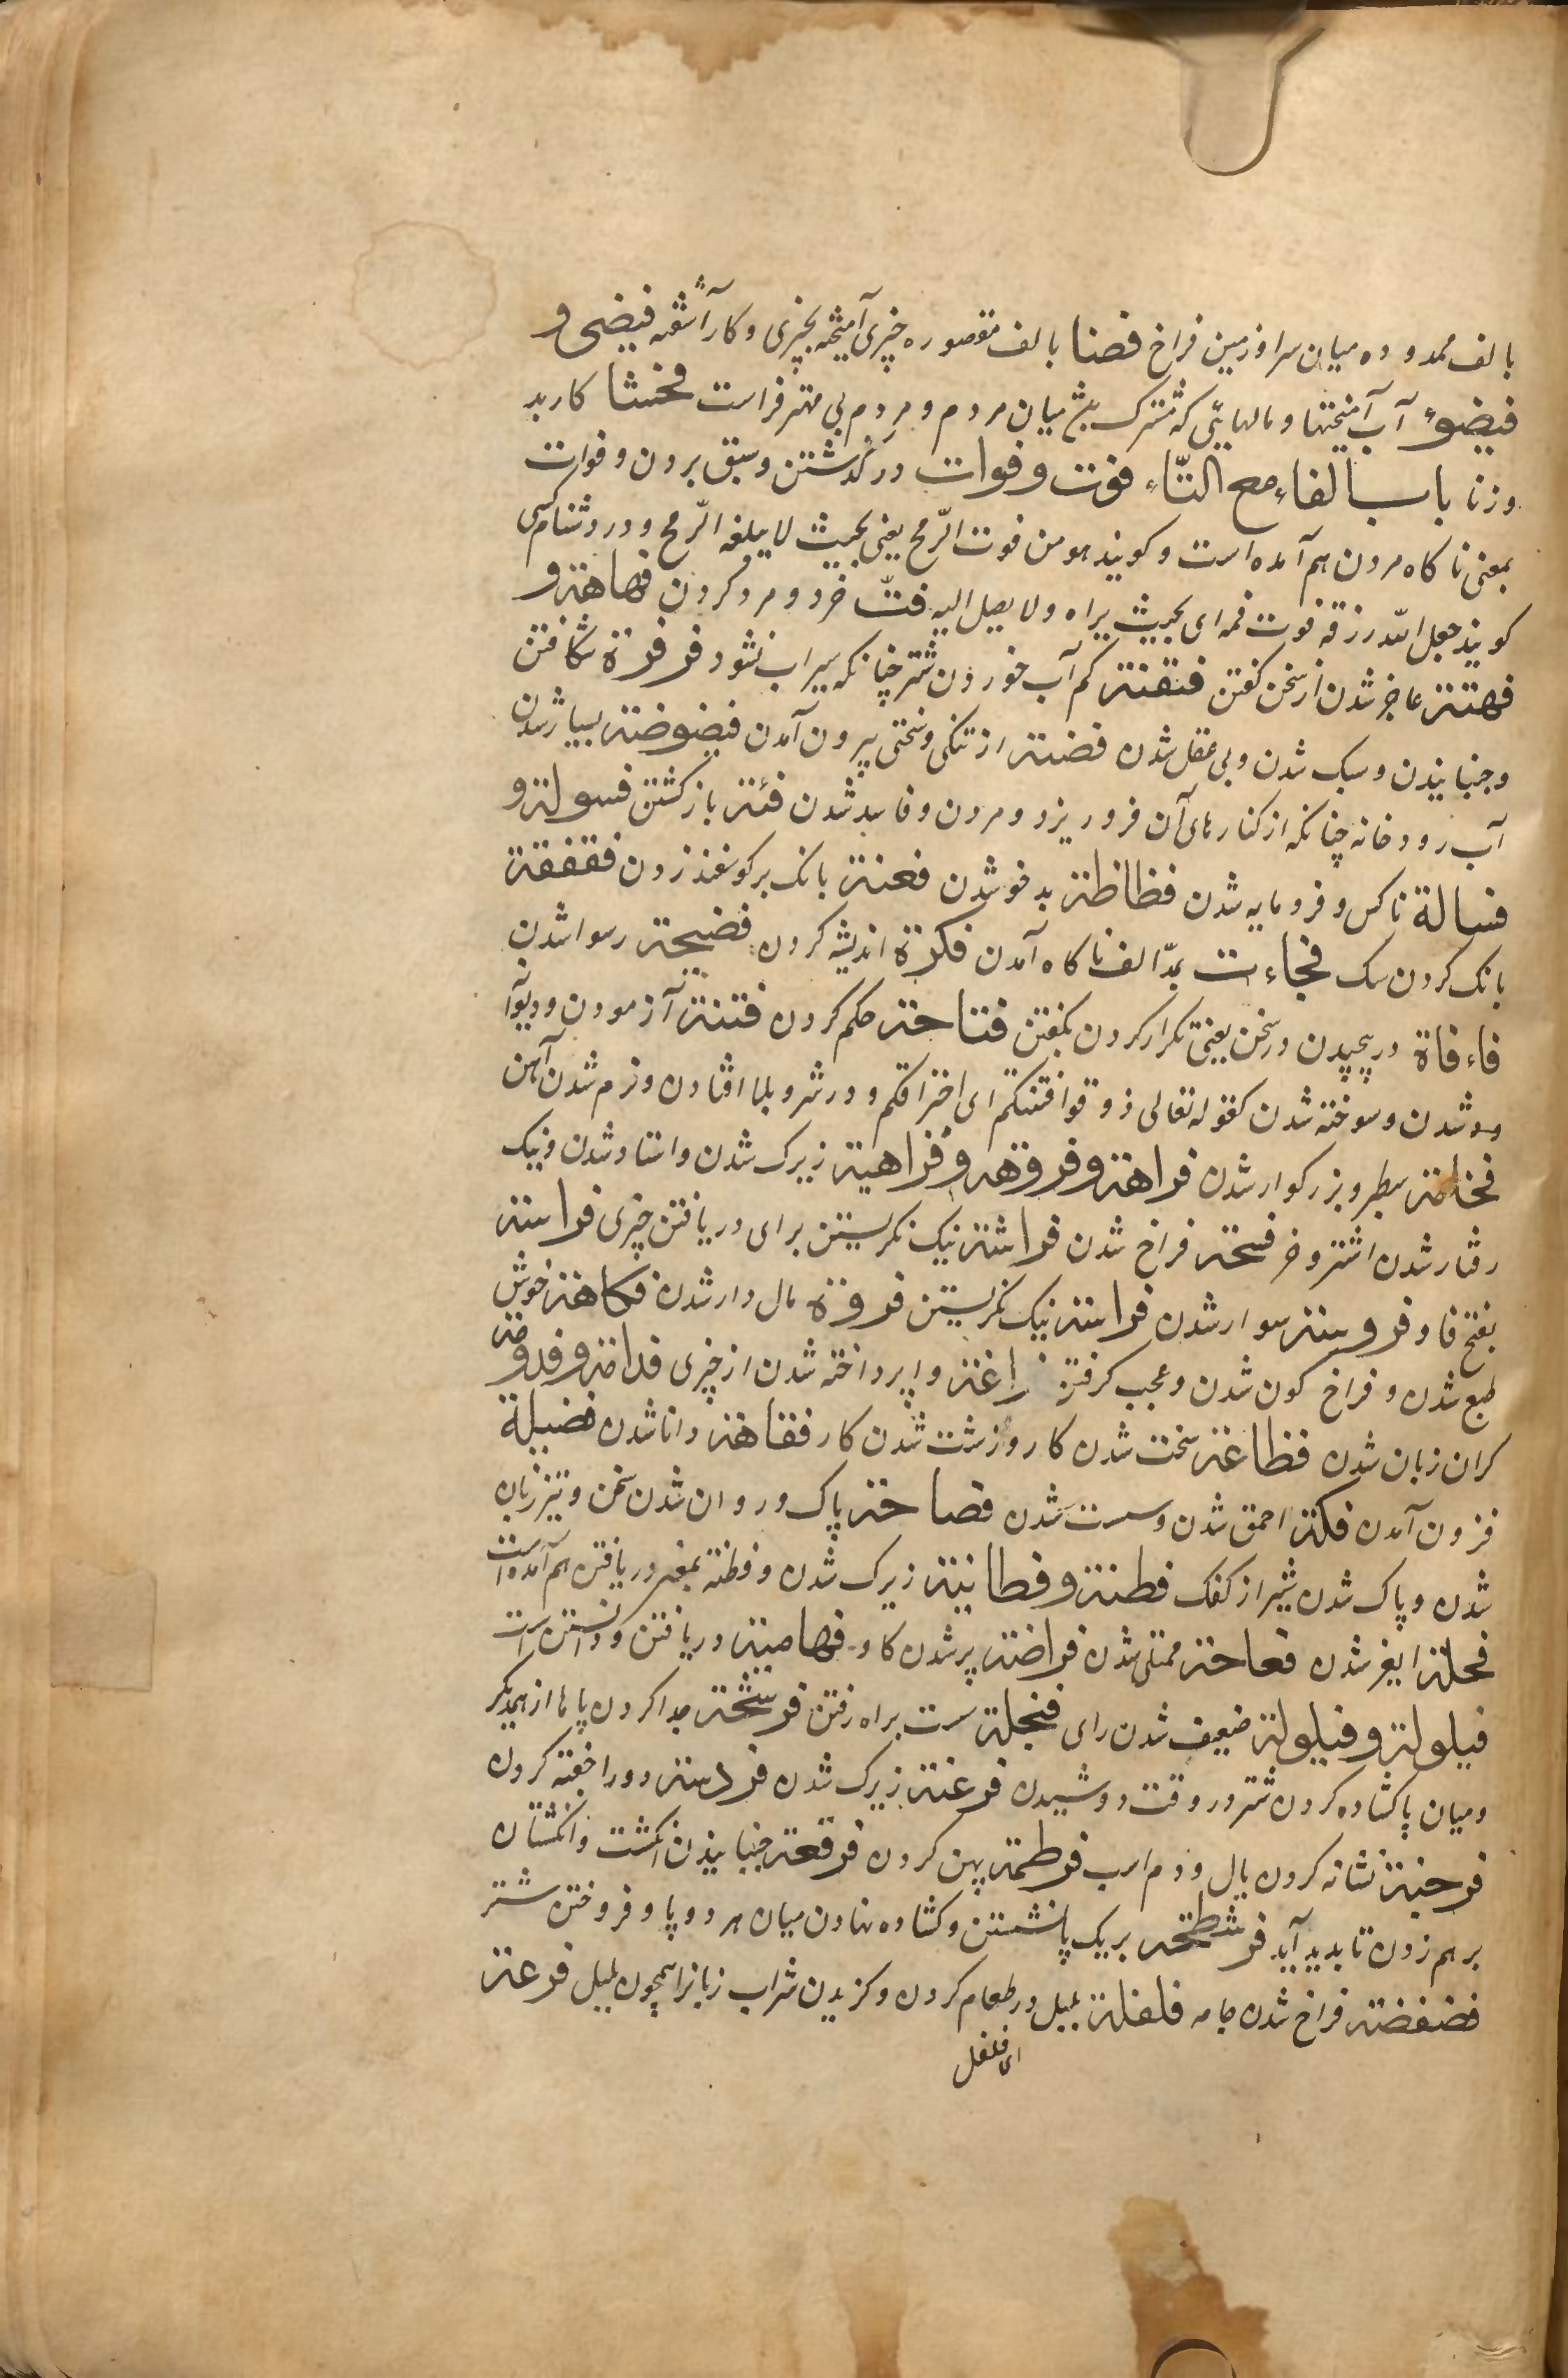 بالف ممدوده میان سرا و زمین فراخ فضا بالف مقصوره چیزی آمیخته بچیزی و کار آشفته فیضی و
فیضوء آب آمیختها و مالهایی که مشترک میان مردم و مردم بی مهتر فراست فحشا کار بد
وزنا باب الفاء مع التّاء فوت و فوات در گذشتن و سبق بردن و فوات
بمعنی ناکاه مردن هم آمده است و کویند هو من فوت الرّمح یعنی بحیث لا یبلغه الرّمح و در دشنام کسی
کویند جعل اللّه رزقه فوت فمه ای بحیث یراه ولا یصل الیه فتّ خرد و مرد کردن فهاهة و
فهتة عاجز شدن از سخن کفتن فتفتة کم آب خوردن شتر چنانکه سیراب نشود فرفرة شکافتن
و جنبانیدن و سبک شدن و بی عقل شدن فضة از تنکی و سختی بیرون آمدن فیضوضة بسیار شدن
آب رودخانه چنانکه از کنارهای آن فرو ریزد و مردن و فاسد شدن فئة باز کشتن فسولة و
فسالة ناکس و فرومایه شدن فظاظة بدخو شدن فعفعة بانک بر کوسفند زدن فقفقة
بانک کردن سک فجاءت بمدّ الف ناکاه آمدن فکرة اندیشه کردن فضیحة رسوا شدن
فاءفاة در پیچیدن در سخن یعنی تکرار کردن بکفتن فتاحة حکم کردن فتنة آزمودن و دیوا
نه شدن و سوخته شدن کقوله تعالی ذوقوا فتنتکم ای احتراقکم و در شر و بلا افتادن و نرم شدن آهن
فخامة سطبر و بزرکوار شدن فراهة و فروهة و فراهیة زیرک شدن و استاد شدن و نیک
رفتار شدن اشتر و خر فسحة فراخ شدن فراشة نیک نکریستن برای دریافتن چیزی فراسة
بفتح فا و فروسة سوار شدن فراسة نیک نکریستن فروة مال دار شدن فکاهة خوش
طبع شدن و فراخ کون شدن و عجب کرفتن فراغة وا پرداخته شدن از چیزی فدامة و فدومة
کران زبان شدن فظاعة سخت شدن کار و زشت شدن کار فقاهة دانا شدن فضیلة
فزون آمدن فکة احمق شدن و سست شدن فصاحة پاک و روان شدن سخن و تیز زبان
شدن و پاک شدن شیر از کفک فطنة و فطانیة زیرک شدن و فطنة بمعنی دریافتن هم آمده است
فحلة ایغر شدن فعاحة ممتلی شدن فراضة پیر شدن کاو فهامیة دریافتن و دانستن است
فیلولة و فیلولة ضعیف شدن رای فنجلة سست براه رفتن فرشحة جدا کردن پاها از همدیکر
و میان پا کشاده کردن شتر در وقت دوشیدن فرغنة زیرک شدن فردسة دور خفته کردن
فرجنة نشانه کردن یال و دم اسب فرطمة پهن کردن فرقعة جنبانیدن انکشت و انکشتان
بر هم زدن تا بدید آید فرشطحة بر یک پا نشستن و کشاده نهادن میان هر دو پا و فروختن شتر
فضفضة فراخ شدن جامه فلفلة پلپل در طعام کردن و کزیدن شراب زبانرا همچون پلپل فرعة
ای فلفل